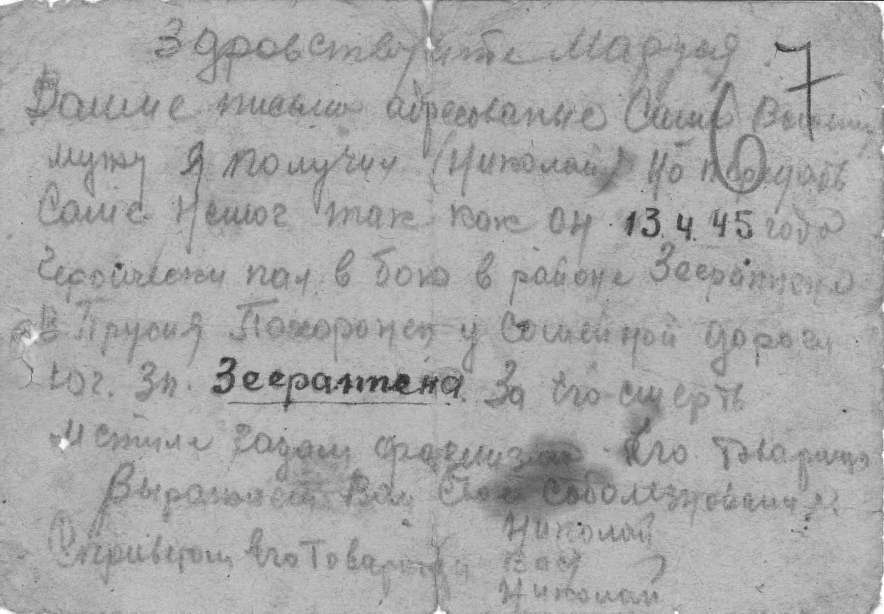 Здровствуйте Маруся 7
Ваши письма адресованые Саше Вашему
мужу я получил (Николай) но передать
Саше немог так как он 13.4.45 года
Героически пал в бою в районе Зеерапена
В Прусия Похоронен у Шосейной дороги
Юг. Зп. Зеерапена. За его смерть
мстили гадам фашизма. Его товарищи
Выражаем Вам свои соболезнования
Николай
С приветом его товарищи
Николай